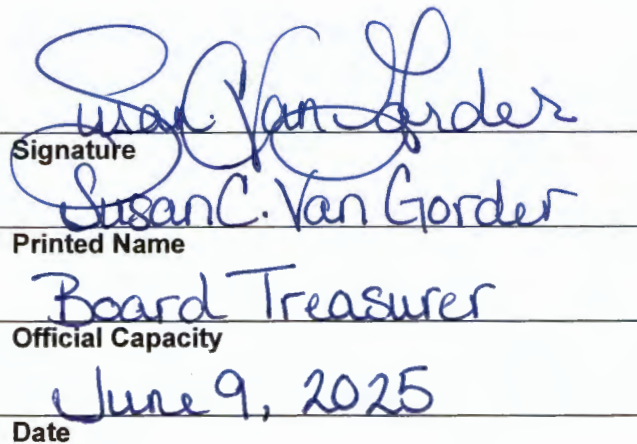 Susan C. Van Gorder
Signature
Susan C. Van Gorder
Printed Name
Board Treasurer
Official Capacity
June 9, 2025
Date